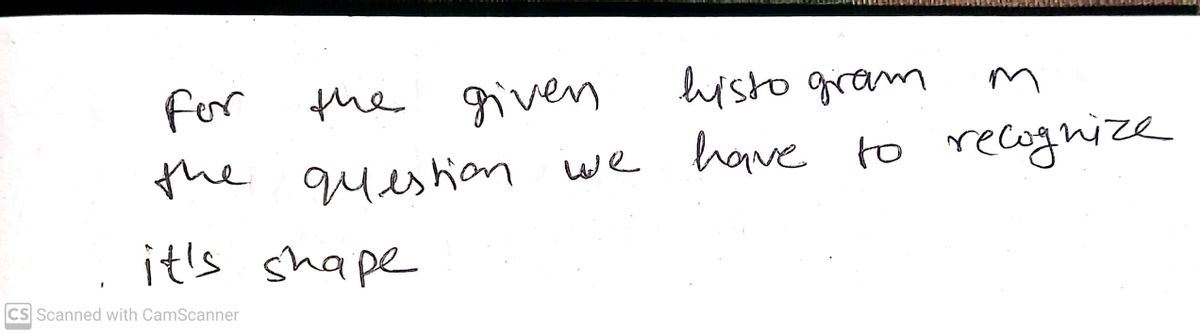 For the given histogram in
the question we have to recognize
it's shape
CS Scanned with CamScanner